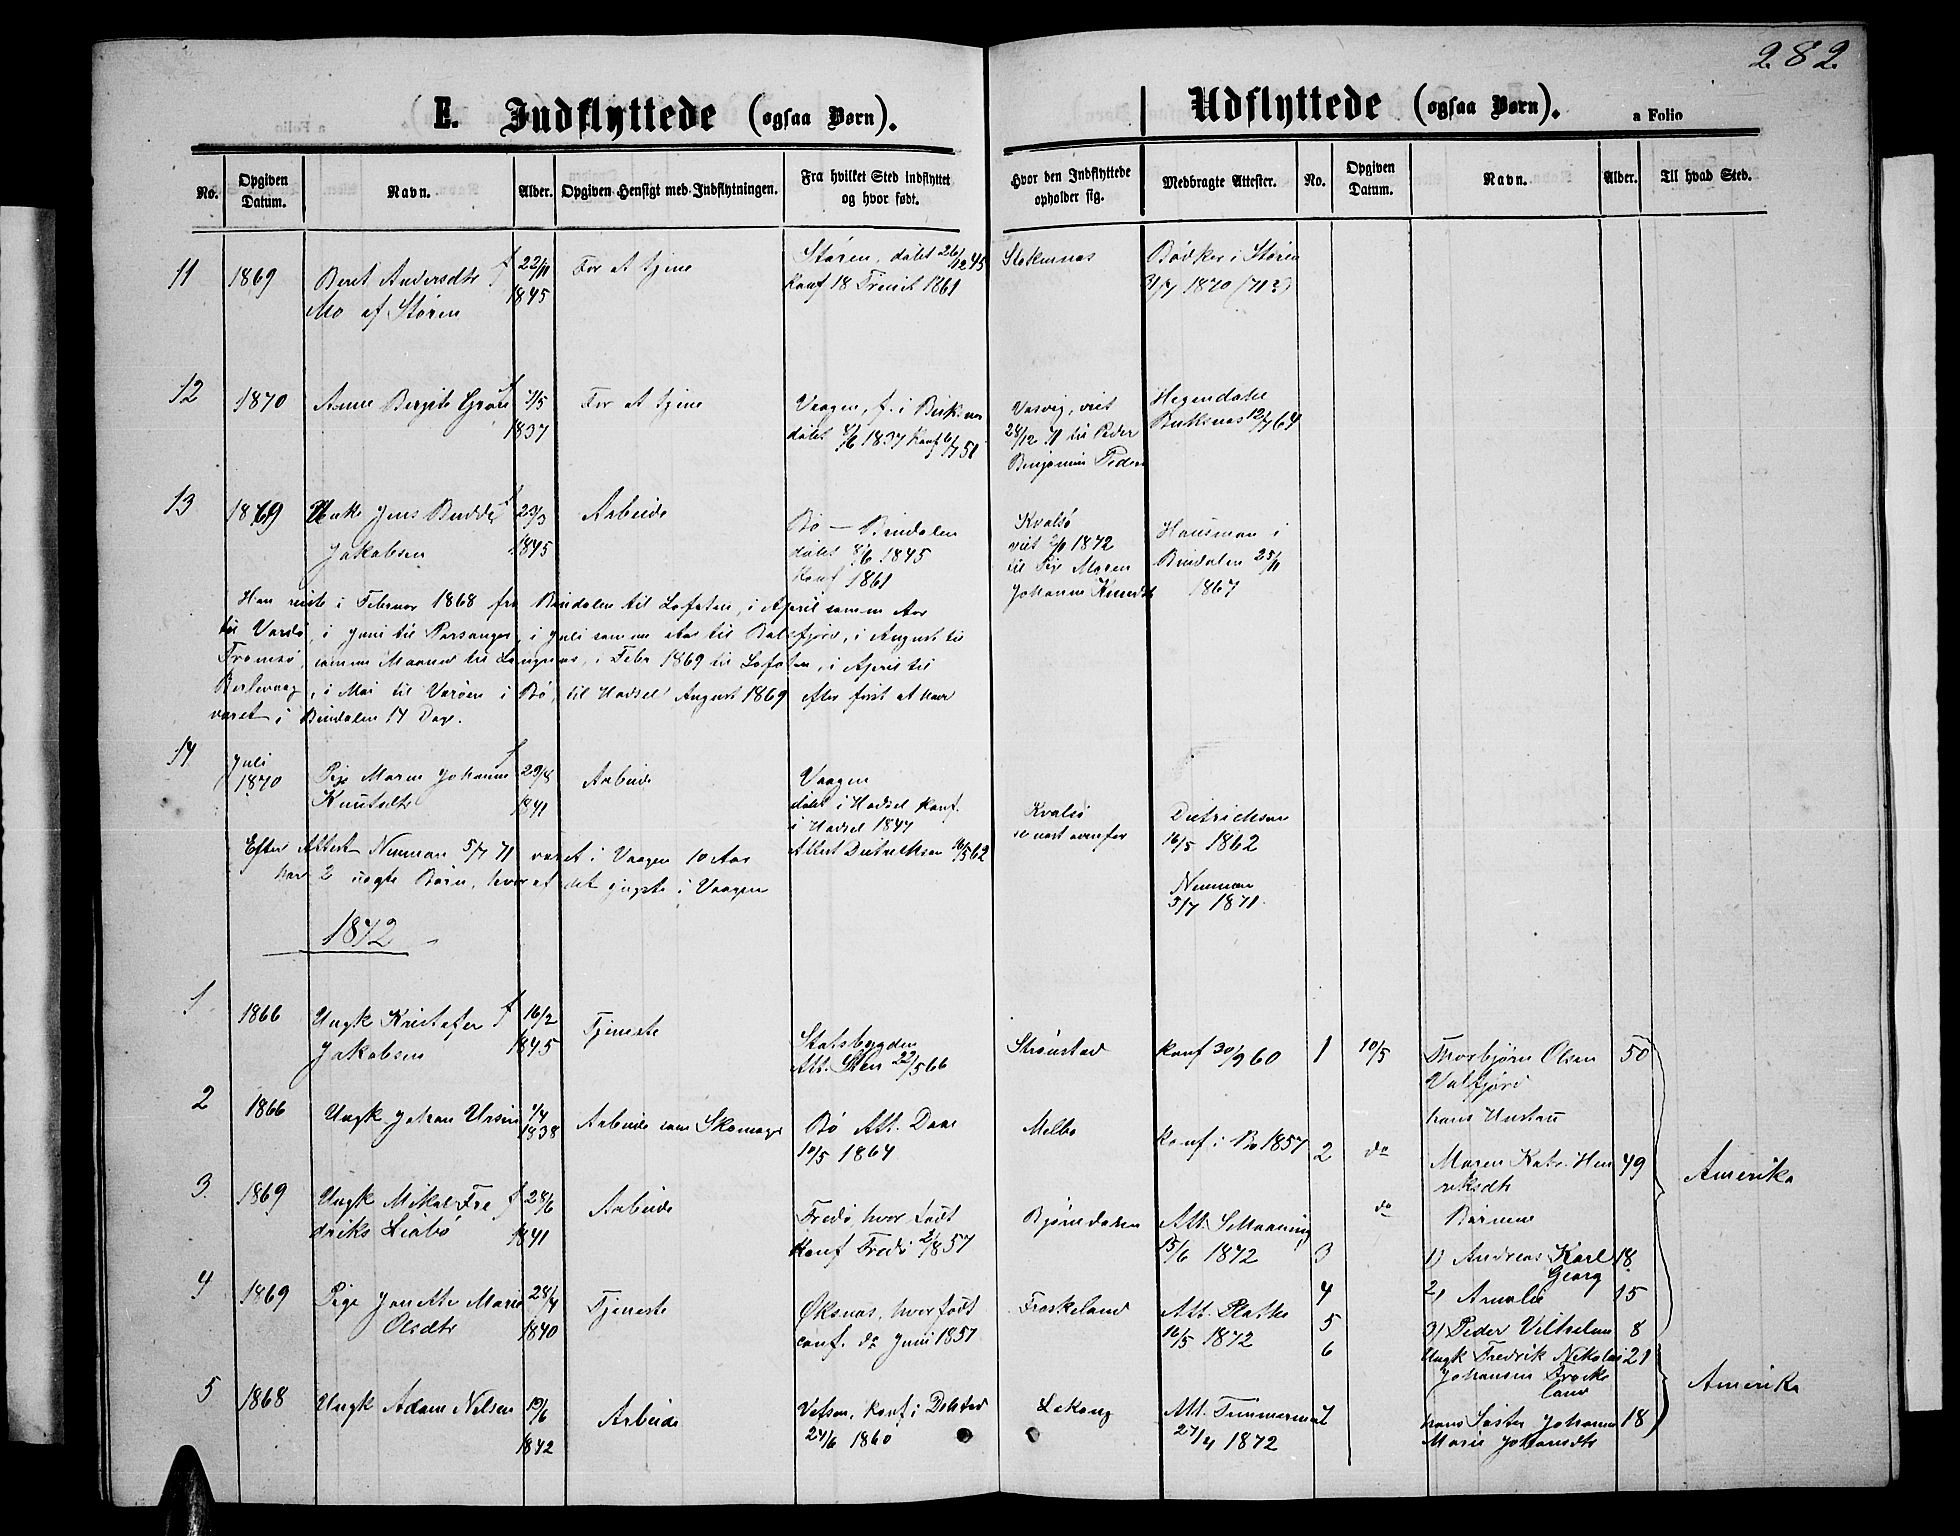 282
E. Indflyttede (ogsaa Børn).
Udflyttede (ogsaa Børn).
a Folio
No.
Opgiven Datum.
Navn.
Alder.
Opgiven Hensigt med Indflytningen.
Fra hvilket Sted indflyttet og hvor født.
Hvor den Indflyttede opholder sig.
Medbragte Attester.
No.
Opgiven Datum.
Navn.
Alder.
Til hvad Sted.
11 1869 Beret Andersdtr f 22/11 For at tjene Støren, døbt 26/12 45 Stokmnæs Bødker i Støren
Mo af Støren 1845 Konf 18 Trinit 1861 31/7 1870 (71?)
12 1870 Anne Bergite f 7/5 For at tjene Vaagen, f. i Buksnes Vasvig, viet
1837 døbt 4/6 1837 Konf 6/7 51 28/12 71 til Peder Buksnæs 12/7 64
Benjamin Peder
13 1869 Unke Jens Budde f 23/3 Arbeide Bø — Bindalen Kvalsø Hausman i
Jakobsen 1845 døbt 8/6 1845 viet 2/1 1872 Bindalen 25/11
Konf 1861 til Pige Maren 1867
Johanne Knudt
Han reiste i Februar 1868 fra Bindalen til Lofoten, i April samme Aar
til Vardø, i Juni til Porsanger, i Juli samme Aar til Balsfjord, i August til
Tromsø, samme Maaned til Langnes, i Febr 1869 til Lofoten, i April til
Berlevaag, i Mai til Varøen i Bø, til Hadsel August 1869 efter først at have
været i Bindalen 14 Dage.
14 Juli Pige Maren Johanne f 29/8 Arbeide Vaagen Kvalsø Dietrichson
1870 Knutsdtr 1841 døbt i Hadsel konf. se næst ovenfor 16/5 1862
i Hadsel 1847
Attest Dietrichson 16/5 62
Efter Attest Neuman 5/7 71 været i Vaagen 10 Aar Neuman
har 2 uægte Børn, hvoraf det yngste i Vaagen 5/7 1871
1872
1 1866 Ungk Kristofer f 16/2 Tjeneste Statsbygden Strønstad konf 30/9 60
Jakobsen 1845 Att. Sten 22/5 66
2 1866 Ungk Johan Ursin 7/4 Arbeide som Skomager Bø Att. Daae Melbo konf i Bø 1857
1838 10/5 1864
3 1869 Ungk Mikal Fre f 28/6 Arbeide Fredø, hvor født Bjørndalen Att.
driks Liabø 1841 Konf Fredø 2/8 1857 15/6 1872
4 1869 Pige Janette Marie 28/4 Tjeneste Øksnæs, hvor født Froskeland Att. Plathe
Olsdtr 1840 conf. do Juni 1857 16/5 1872
5 1868 Ungk Adam Nilsen 19/6 Arbeide Vefsen, konf i Dolstad Lekang Att. Timmerman
1842 24/6 1860 27/4 1872
1 10/5 Thorbjørn Olsen 50
Valfjord
hans Hustru
2 do Maren Katr. Hen 49 Amerika
riksdtr
do Børnene
3 1) Andreas Karl 18
Georg
4 2) Amalie 15
5 3) Peder Vilhelm 8
6 Ungk Fredrik Nikolai 21 Amerika
Johansen Froske
land
7 hans Søster Johanne 18
Marie Johansdtr